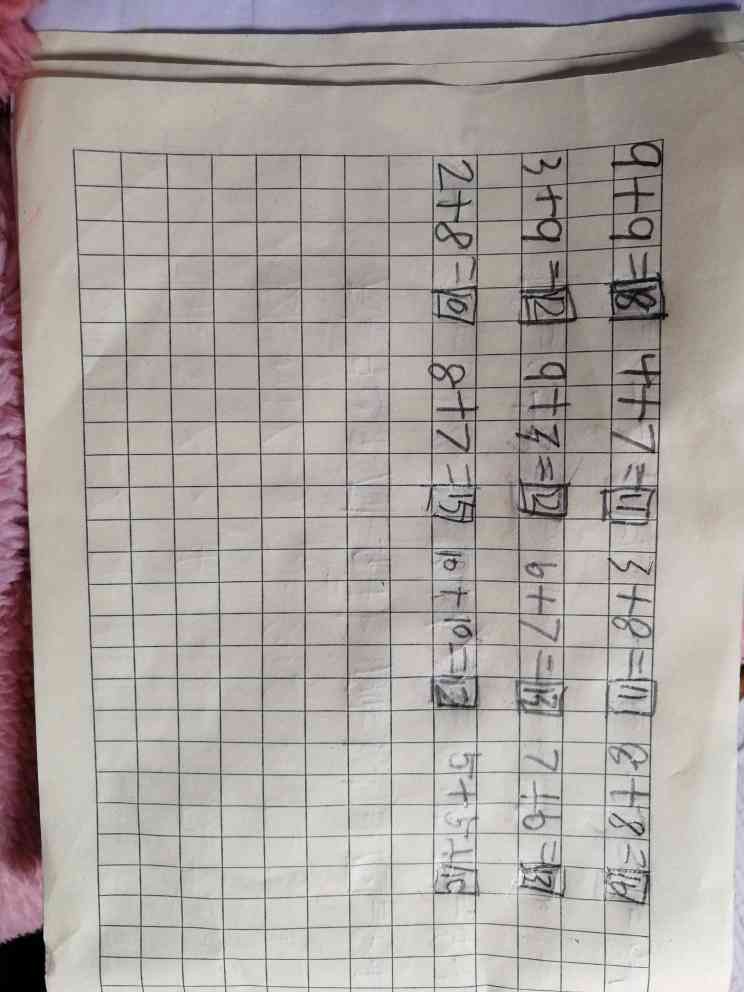 9+9=18 4+7=11 3+8=11 8+8=16
3+9=12 9+3=12 6+7=13 7+6=13
2+8=10 8+7=15 10+10=12 5+5=10